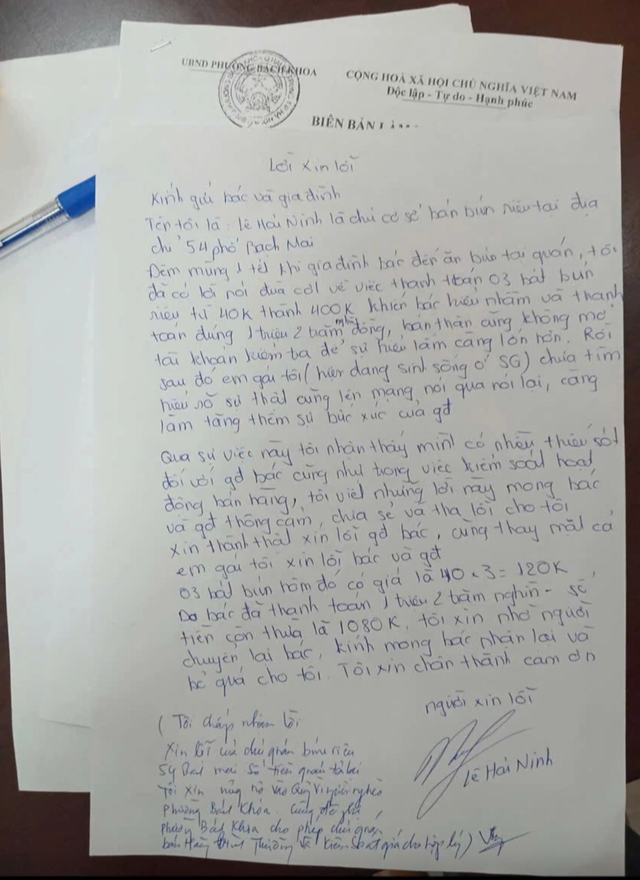 UBND PHƯỜNG BÁCH KHOA
CỘNG HOÀ XÃ HỘI CHỦ NGHĨA VIỆT NAM
Độc lập - Tự do - Hạnh phúc
BIÊN BẢN
Lời xin lỗi
Kính gửi bác và gia đình
Tên tôi là: Lê Hải Ninh là chủ cơ sở bán bún riêu tại địa
chỉ 54 phố Bạch Mai
Đêm mùng 1 tết khi gia đình bác đến ăn bún tại quán, tôi
đã có lời nói đùa cợt về việc thanh toán 03 bát bún
riêu từ 40K thành 400K khiến bác hiểu nhầm và thanh
toán đúng 1 triệu 2 trăm nghìn đồng, bản thân cũng không mở
tài khoản kiểm tra để sự hiểu lầm càng lớn hơn. Rồi
sau đó em gái tôi (hiện đang sinh sống ở SG) chưa tìm
hiểu rõ sự thật cũng lên mạng nói qua nói lại, càng
làm tăng thêm sự bức xúc của gđ
Qua sự việc này tôi nhận thấy mình có nhiều thiếu sót
đối với gđ bác cũng như trong việc kiểm soát hoạt
động bán hàng, tôi viết những lời này mong bác
và gđ thông cảm, chia sẻ và tha lỗi cho tôi
xin thành thật xin lỗi gđ bác, cũng thay mặt cả
em gái tôi xin lỗi bác và gđ
03 bát bún hôm đó có giá là 40 x 3 = 120K
Do bác đã thanh toán 1 triệu 2 trăm nghìn - số
tiền còn thừa là 1080K, tôi xin nhờ người
chuyển lại bác, kính mong bác nhận lại và
bỏ quá cho tôi. Tôi xin chân thành cảm ơn
người xin lỗi
Lê Hải Ninh
( Tôi chấp nhận lời
xin lỗi của chủ quán bún riêu
54 Bạch mai số tiền quán trả lại
Tôi xin ủng hộ vào Quỹ Vì người nghèo
Phường Bách Khoa. Cũng
phường Bách Khoa cho phép chủ quán
bán Hàng Bình Thường và kiểm soát giá cho hợp lý )